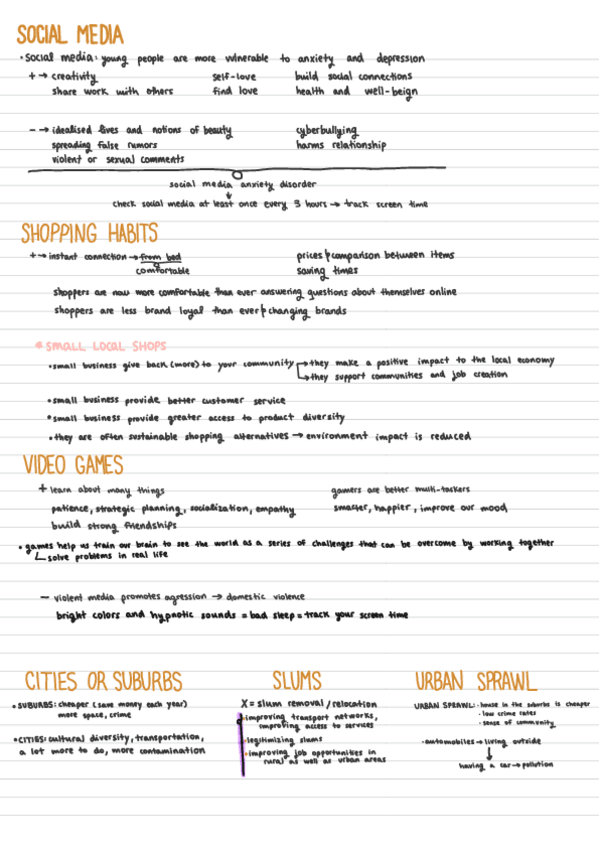 SOCIAL MEDIA
• social media: young people are more vulnerable to anxiety and depression
+ → creativity self-love build social connections
share work with others find love health and well-beign
- → idealised lives and notions of beauty cyberbullying
spreading false rumors harms relationship
violent or sexual comments
social media anxiety disorder
↓
check social media at least once every 3 hours → track screen time
SHOPPING HABITS
+ → instant connection → from bed prices/comparison between items
comfortable saving times
shoppers are now more comfortable than ever answering questions about themselves online
shoppers are less brand loyal than ever/changing brands
* SMALL LOCAL SHOPS
• small business give back (more) to your community → they make a positive impact to the local economy
→ they support communities and job creation
• small business provide better customer service
• small business provide greater access to product diversity
• they are often sustainable shopping alternatives → environment impact is reduced
VIDEO GAMES
+ learn about many things gamers are better multi-taskers
patience, strategic planning, socialization, empathy smarter, happier, improve our mood
build strong friendships
• games help us train our brain to see the world as a series of challenges that can be overcome by working together
solve problems in real life
- violent media promotes agression → domestic violence
bright colors and hypnotic sounds = bad sleep = track your screen time
CITIES OR SUBURBS
• SUBURBS: cheaper (save money each year)
more space, crime
• CITIES: cultural diversity, transportation,
a lot more to do, more contamination
SLUMS
X = slum removal/relocation
• improving transport networks,
improving access to services
• legitimizing slums
• improving job opportunities in
rural as well as urban areas
URBAN SPRAWL
URBAN SPRAWL: • house in the suburbs is cheaper
• low crime rates
• sense of community
• automobiles → living outside
↓
having a car → pollution